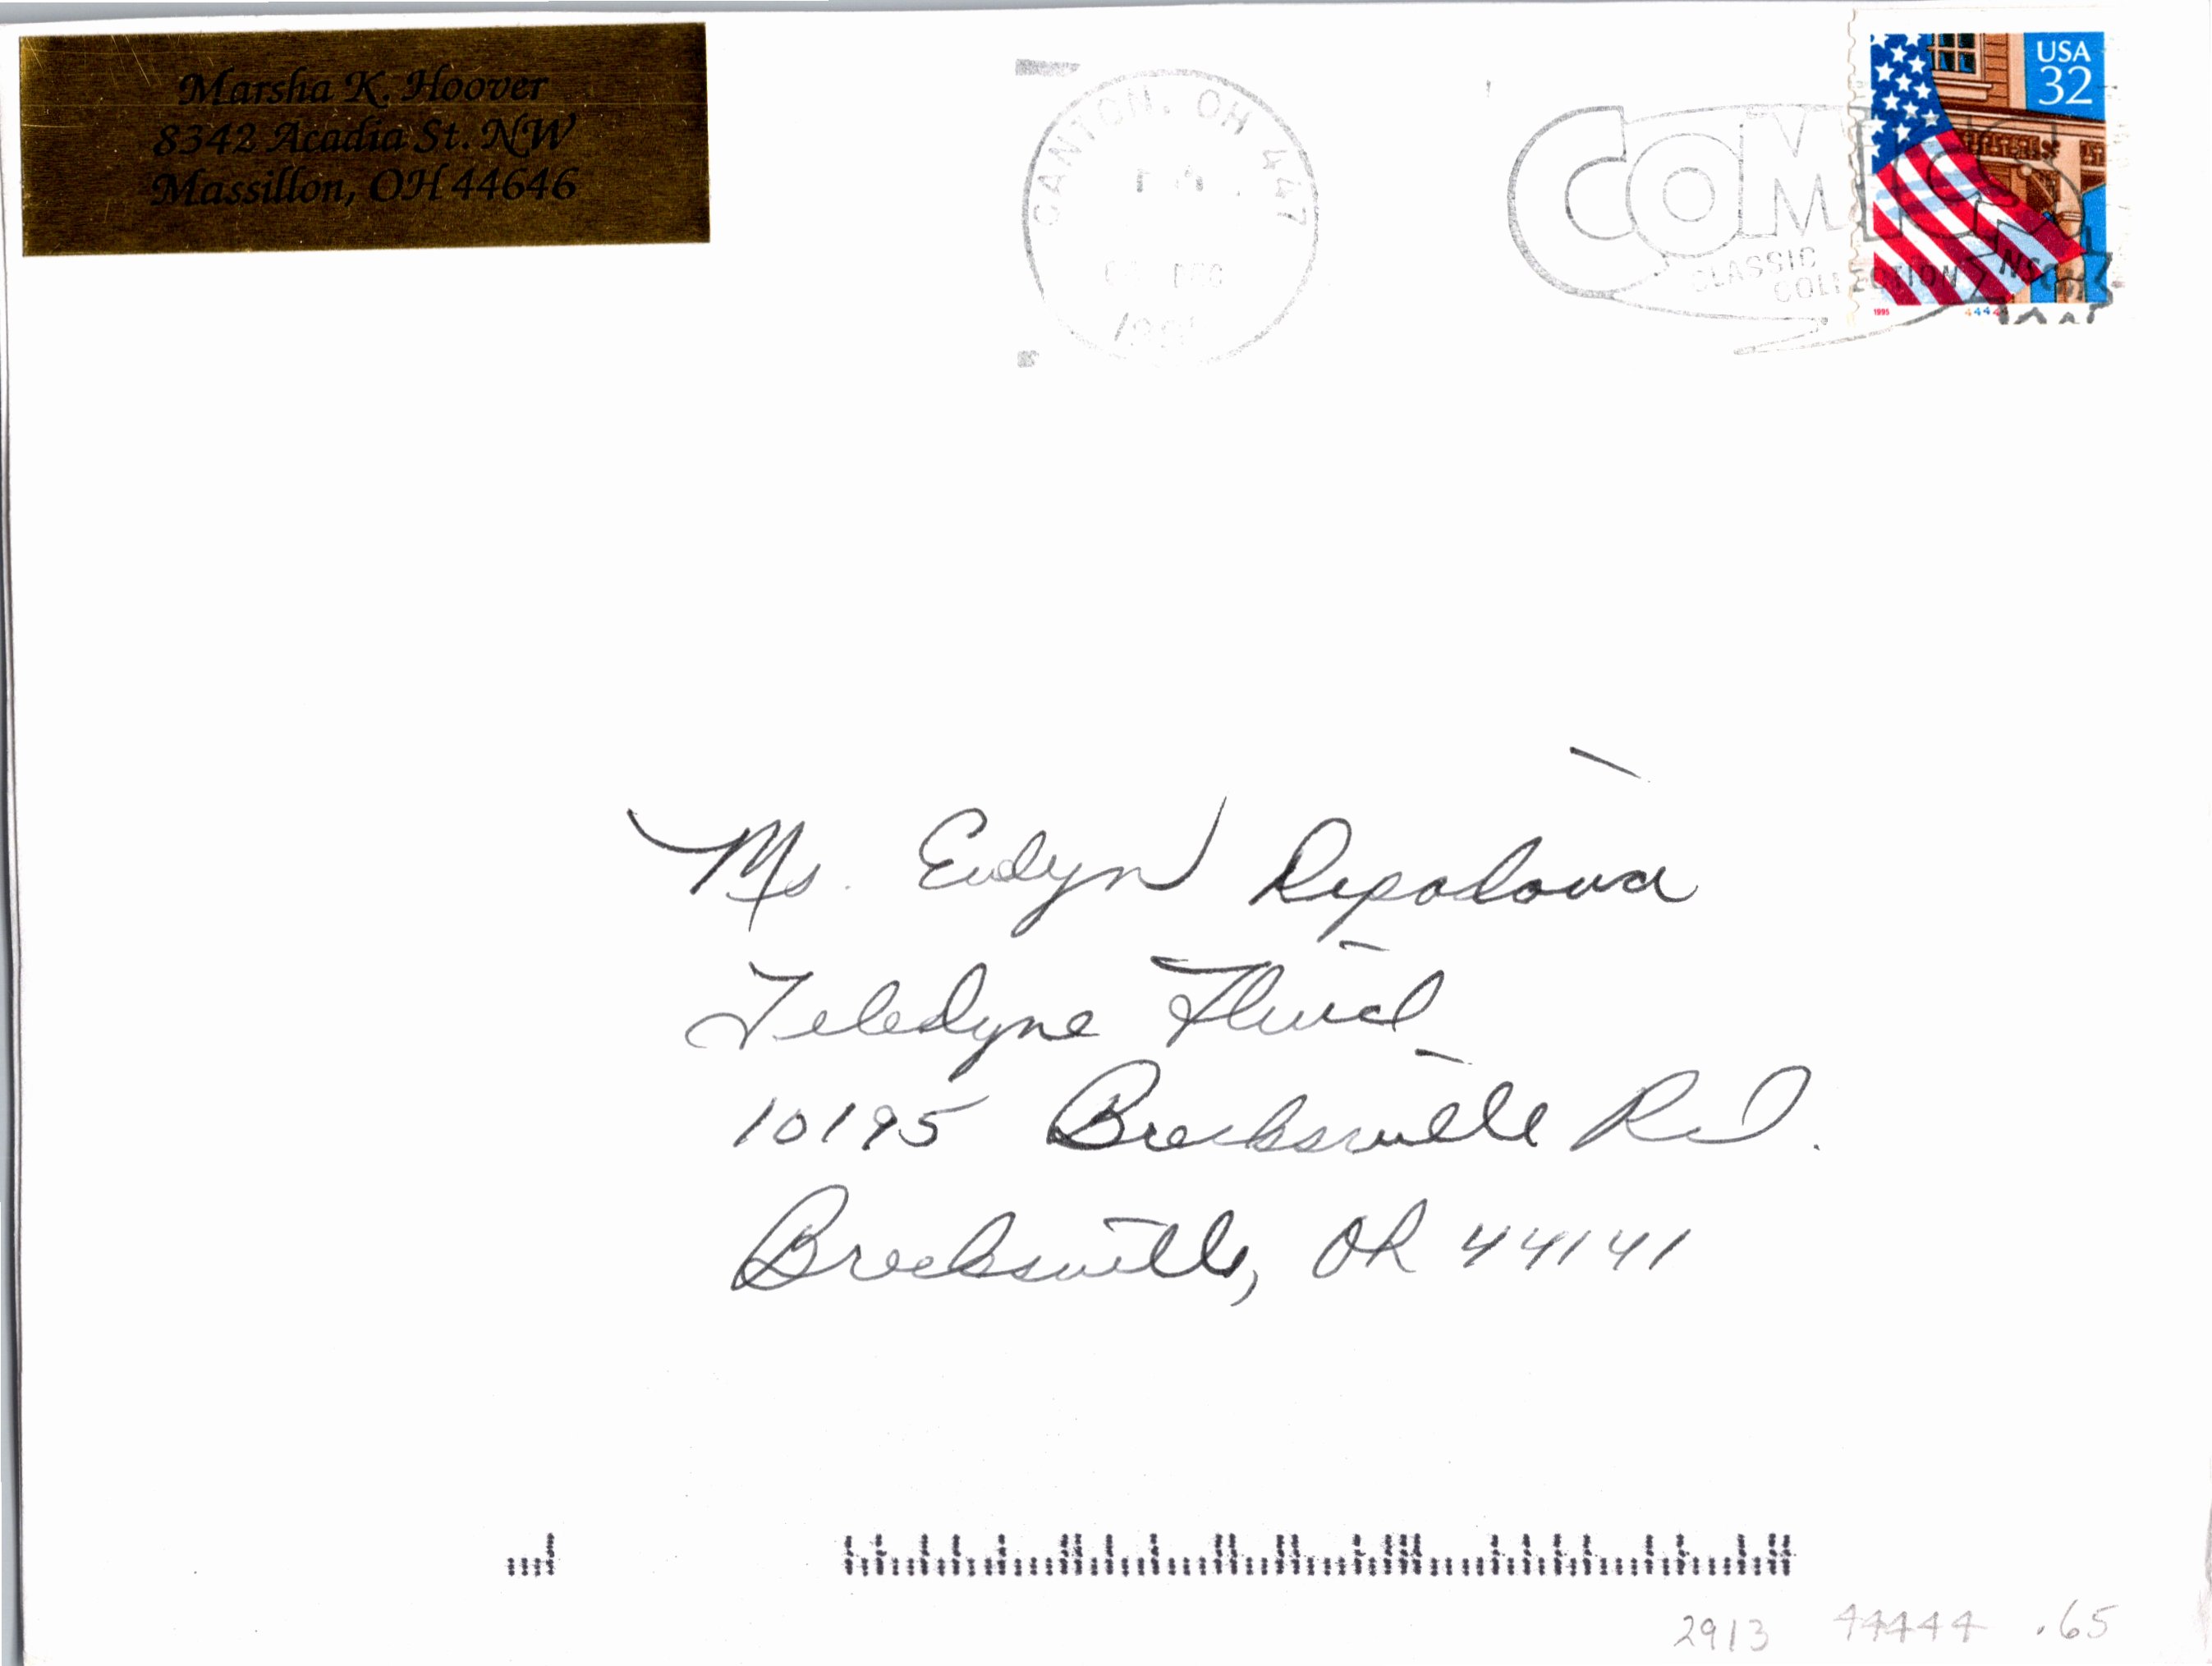 Marsha K. Hoover
8342 Acadia St. NW
Massillon, OH 44646
CANTON, OH 447
DEC
COMICS
CLASSIC
COLLECTION
USA
32
1995
Ms. Evelyn
Teledyne Fluid
10195 Brecksville Rd.
Brecksville, OH 44141
2913 44444 .65